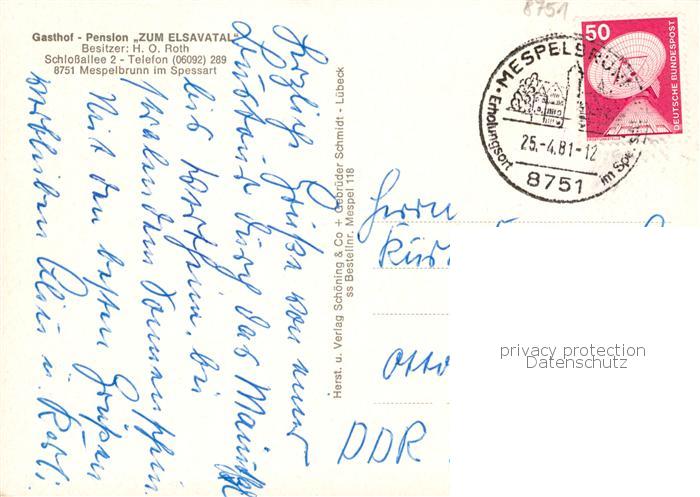 Gasthof - Pension „ZUM ELSAVATAL"
Besitzer: H. O. Roth
Schloßallee 2 - Telefon (06092) 289
8751 Mespelbrunn im Spessart
Herzliche Grüße von einer
Bustour durch das Maintal
bis Wertheim, bei
strahlendem Sonnenschein.
Mit den besten Grüßen
verbleiben
u. Karl.
Herst. u. Verlag Schöning & Co + Gebrüder Schmidt - Lübeck
ss Bestellnr. Mespel 118
8751
50
DEUTSCHE BUNDESPOST
MESPELBRUNN
25.-4.81-12
Erholungsort im Spessart
8751
Herrn
Kur
Otto
DDR
privacy protection
Datenschutz